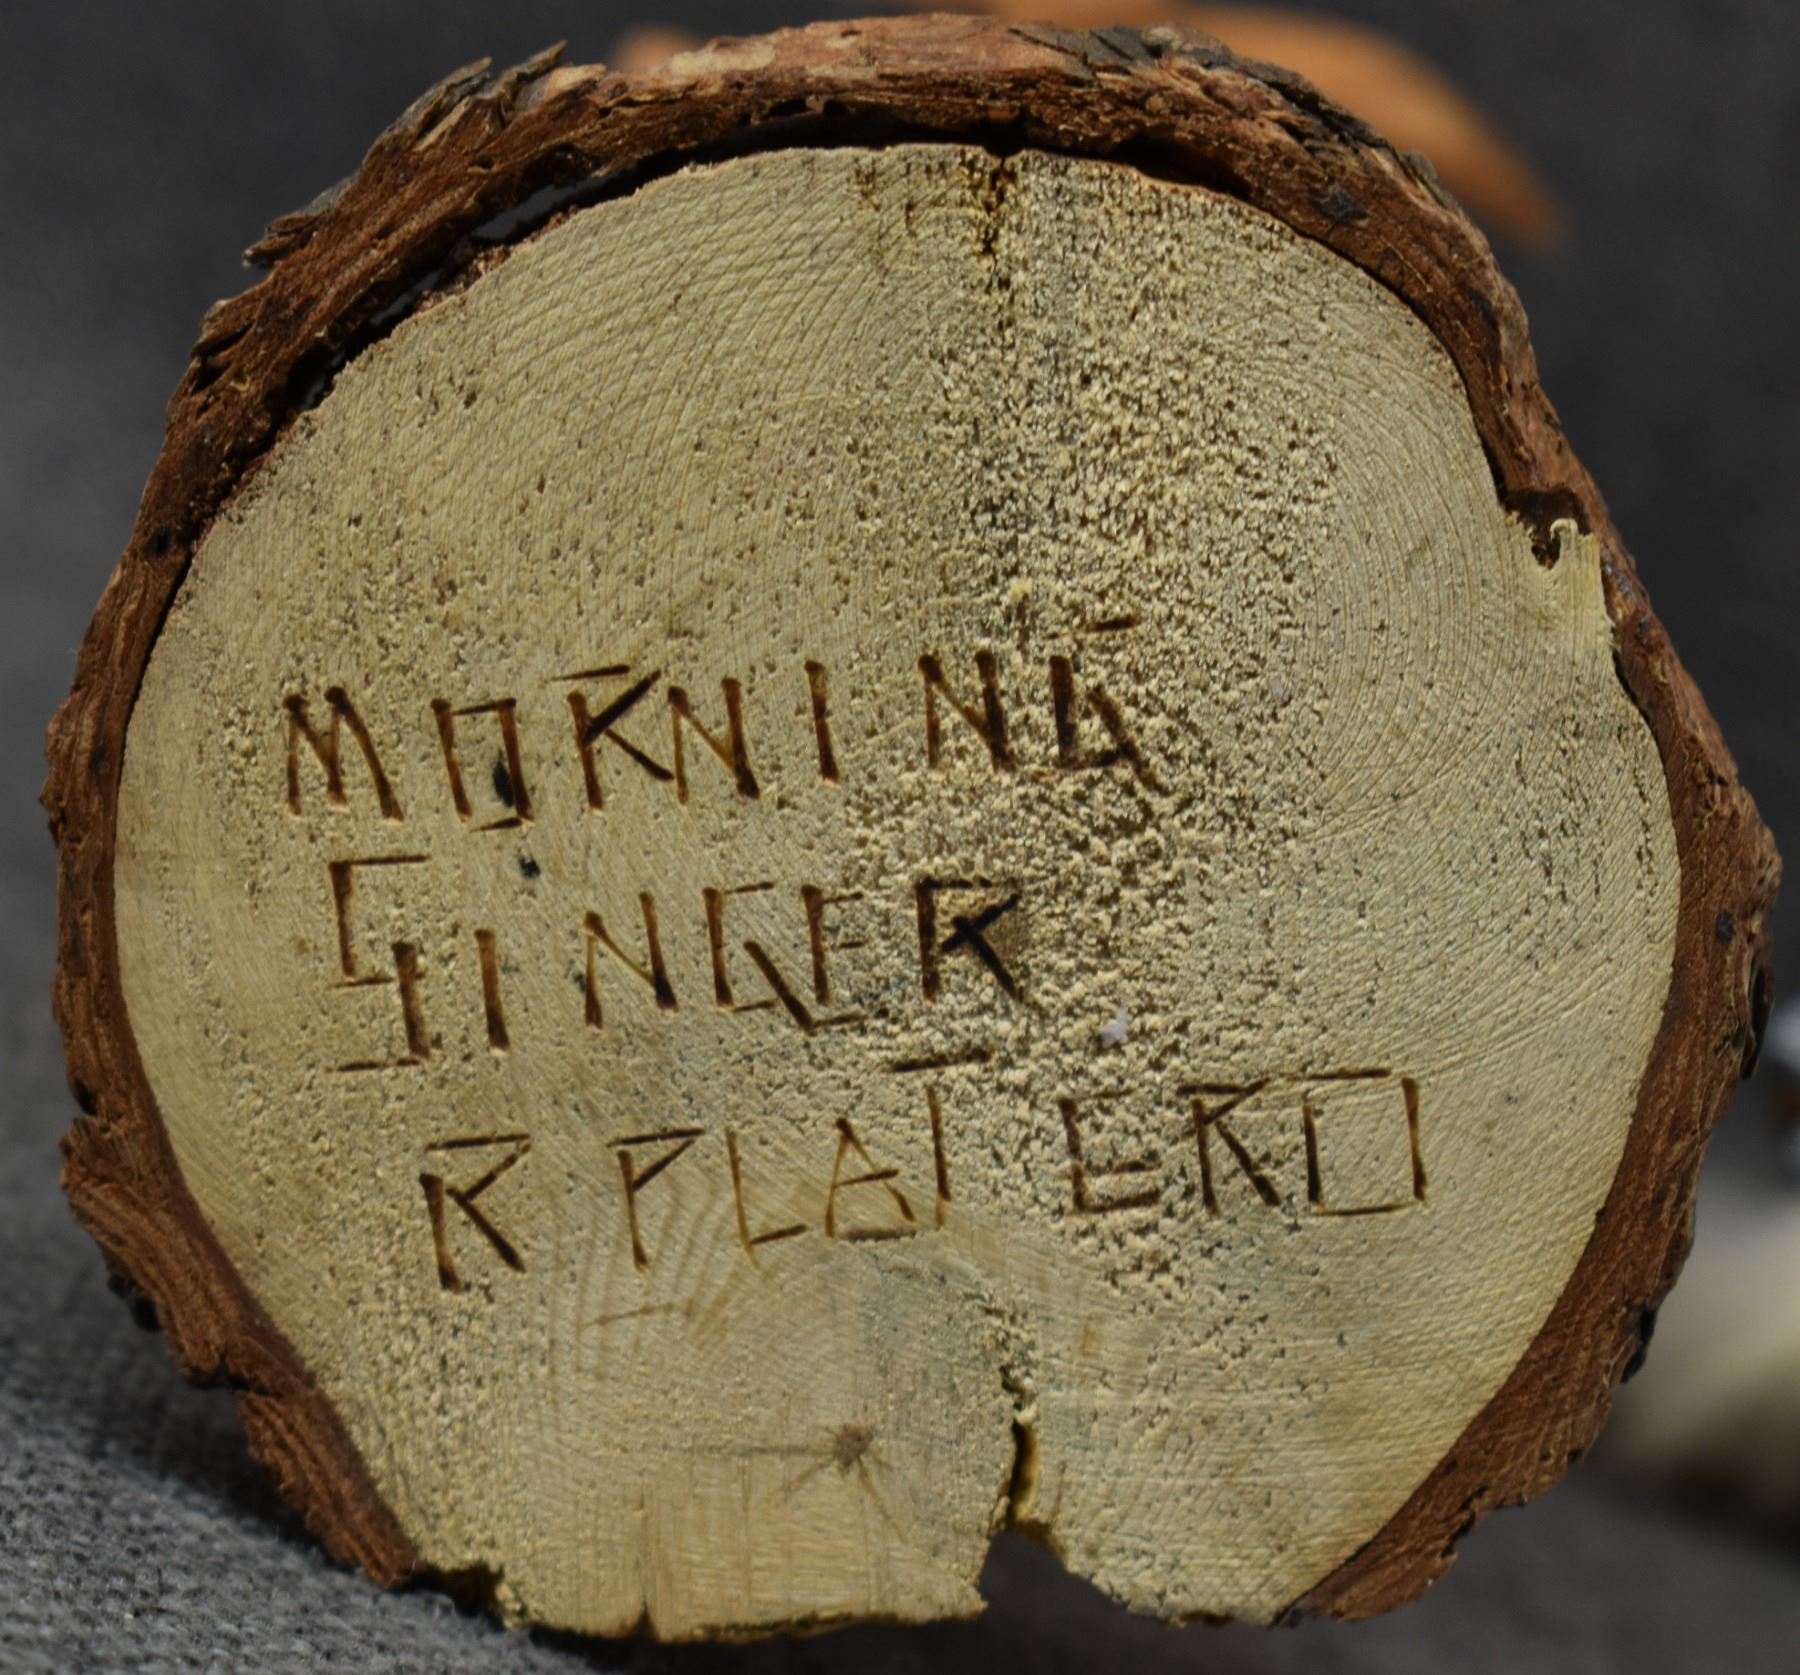 MORNING
SINGER
R PLATERO